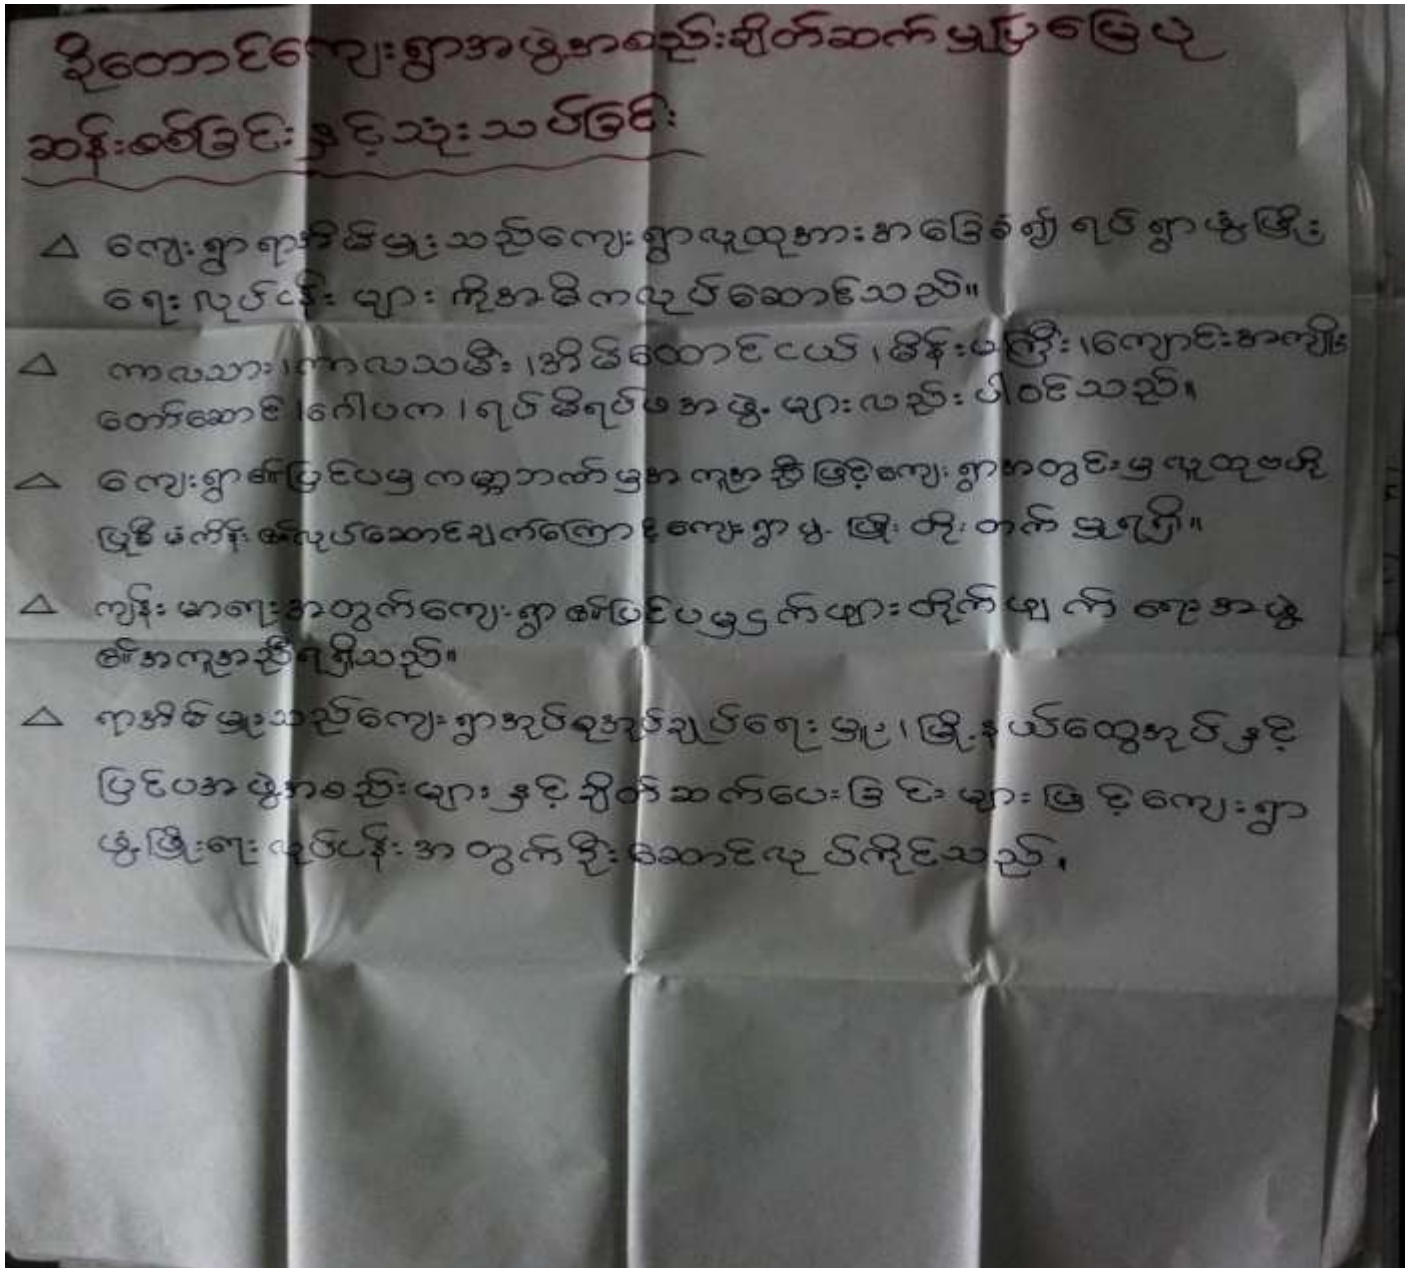 ဒိုတောင်ကျေးရွာအဖွဲ့အစည်းချိတ်ဆက်မှုပြမြေပုံ
ဆန်းစစ်ခြင်းနှင့်သုံးသပ်ခြင်း
△ ကျေးရွာရာအိမ်မှူးသည်ကျေးရွာလူထုအားအခြေခံ၍ ရပ်ရွာဖွံ့ဖြိုး
ရေးလုပ်ငန်းများကိုအဓိကလုပ်ဆောင်သည်။
△ ကာလသား၊ကာလသမီး၊အိမ်ထောင်ငယ်၊မိန်းမကြီး၊ကျောင်းအကျိုး
တော်ဆောင်၊ဂေါပက၊ရပ်မိရပ်ဖအဖွဲ့များလည်းပါဝင်သည်။
△ ကျေးရွာ၏ပြင်ပမှကမ္ဘာ့ဘဏ်မှအကူအညီဖြင့်ကျေးရွာအတွင်းမှလူထုဗဟို
ပြုစီမံကိန်း၏လုပ်ဆောင်ချက်ကြောင့်ကျေးရွာဖွံ့ဖြိုးတိုးတက်မှုရရှိ။
△ ကျန်းမာရေးအတွက်ကျေးရွာ၏ပြင်ပမှငှက်ဖျားတိုက်ဖျက်ရေးအဖွဲ့
၏အကူအညီရရှိသည်။
△ ရာအိမ်မှူးသည်ကျေးရွာအုပ်စုအုပ်ချုပ်ရေးမှူး၊မြို့နယ်ထွေအုပ်နှင့်
ပြင်ပအဖွဲ့အစည်းများနှင့်ချိတ်ဆက်ပေးခြင်းများဖြင့်ကျေးရွာ
ဖွံ့ဖြိုးရေးလုပ်ငန်းအတွက်ဦးဆောင်လုပ်ကိုင်သည်။